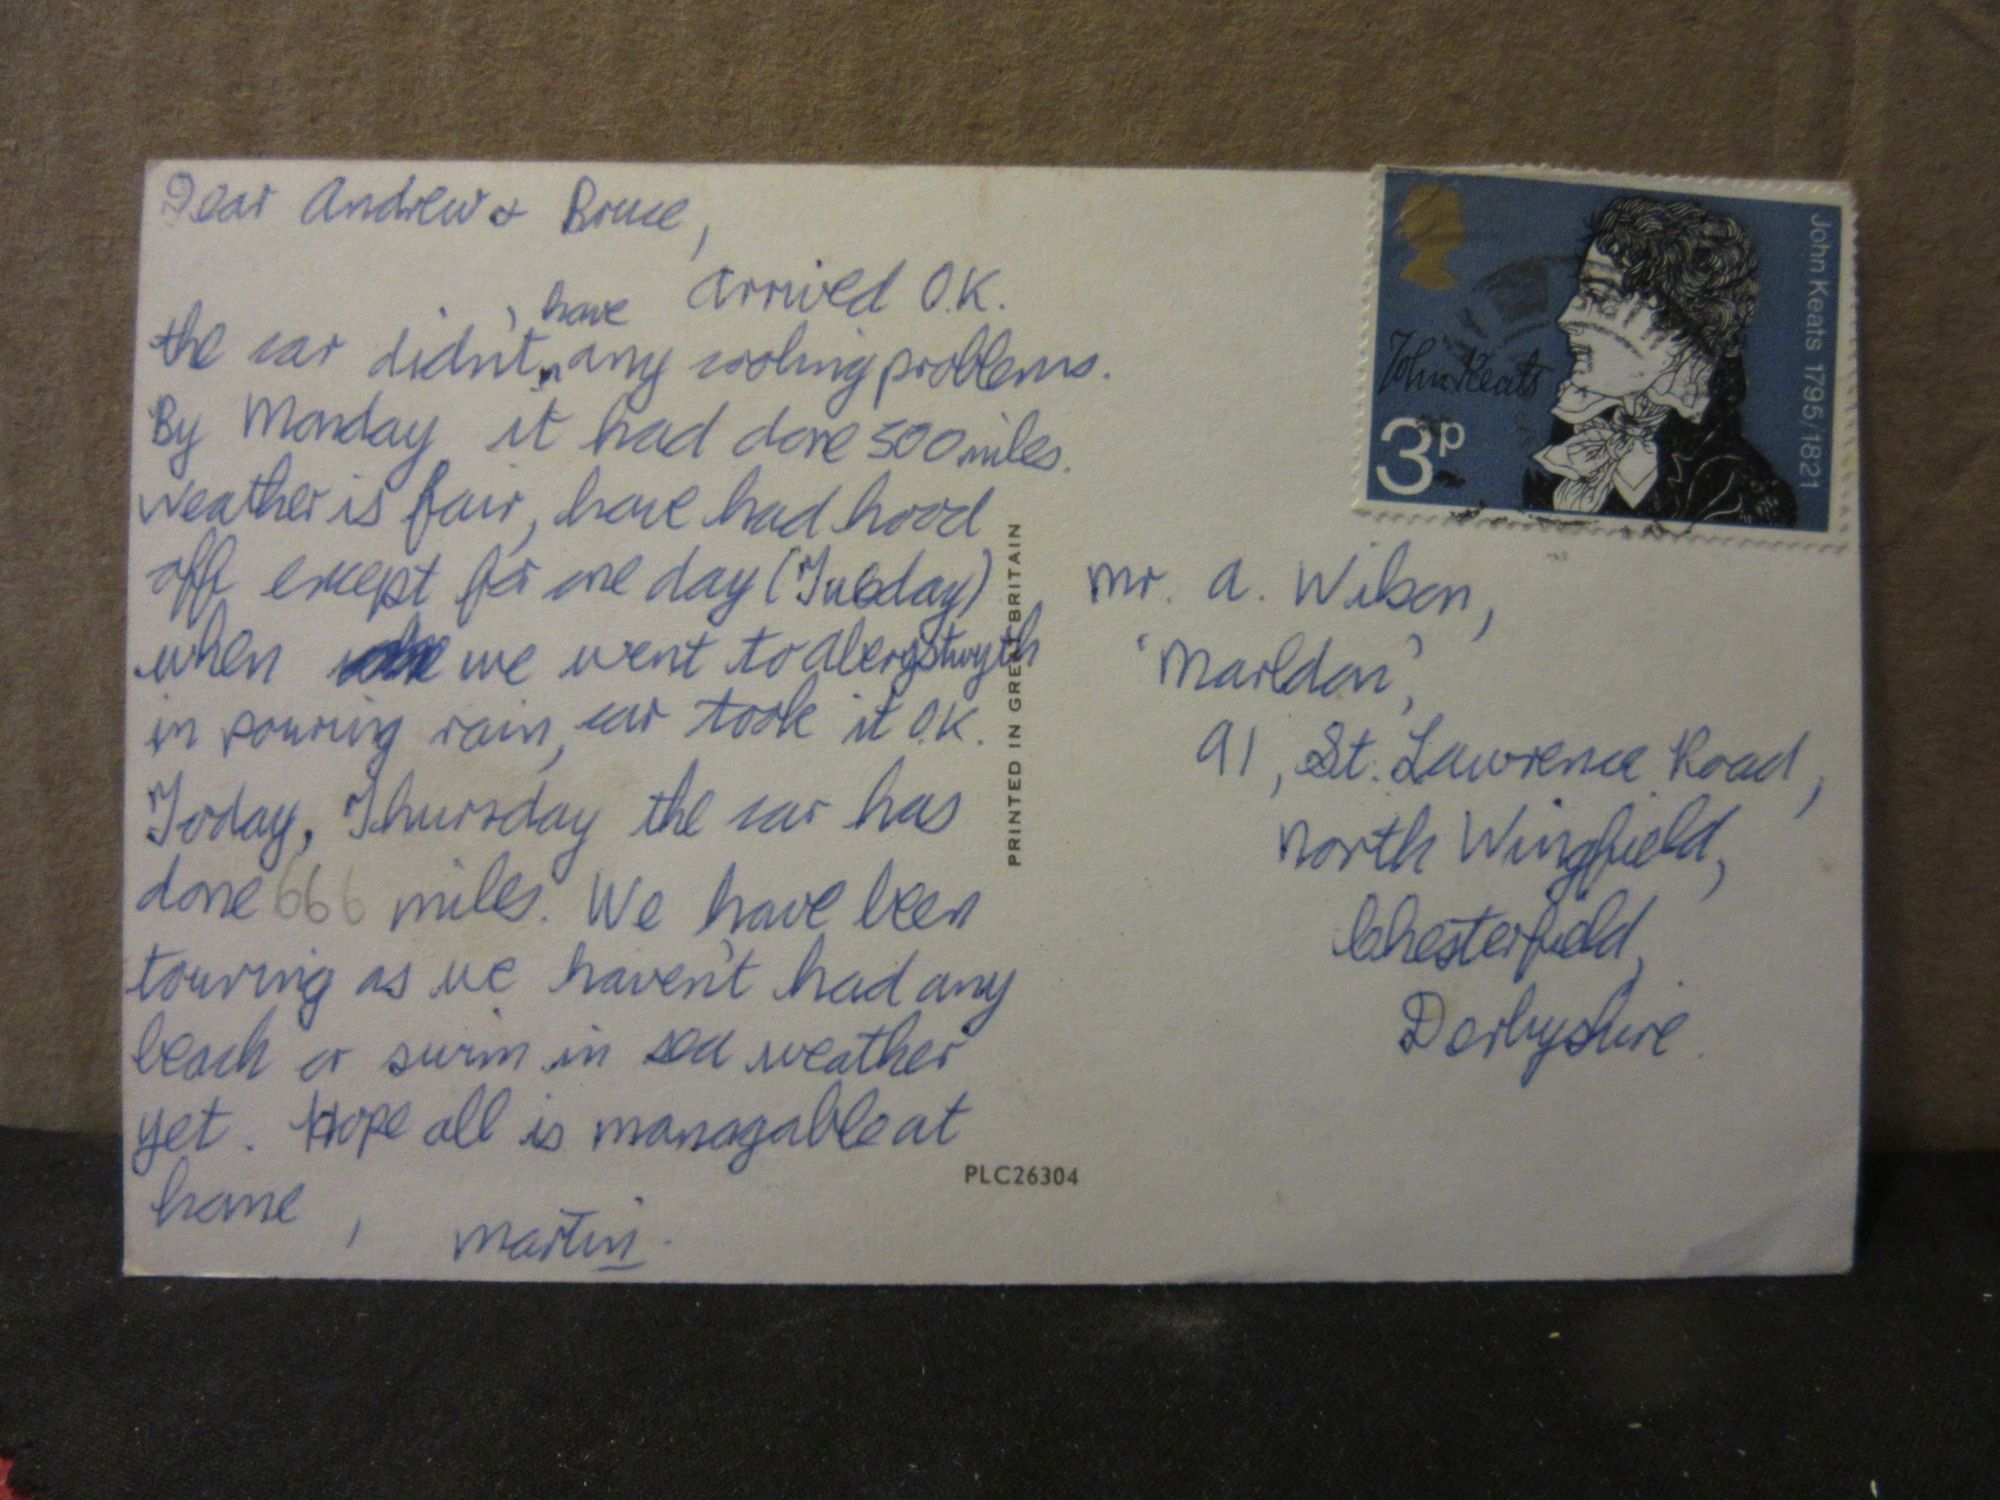 Dear Andrew & Bruce,
arrived O.K.
the car didn't have any cooling problems.
By Monday it had done 500 miles.
Weather is fair, have had hood
off except for one day (Tuesday)
when we went to Aberystwyth
in pouring rain, car took it O.K.
Today, Thursday the car has
done 666 miles. We have been
touring as we haven't had any
beach or swim in sea weather
yet. Hope all is managable at
home,
Martin.
PRINTED IN GREAT BRITAIN
PLC26304
John Keats 1795/1821
John Keats
3p
Mr. A. Wilson,
'Marldon',
91, St. Lawrence Road,
North Wingfield,
Chesterfield,
Derbyshire.